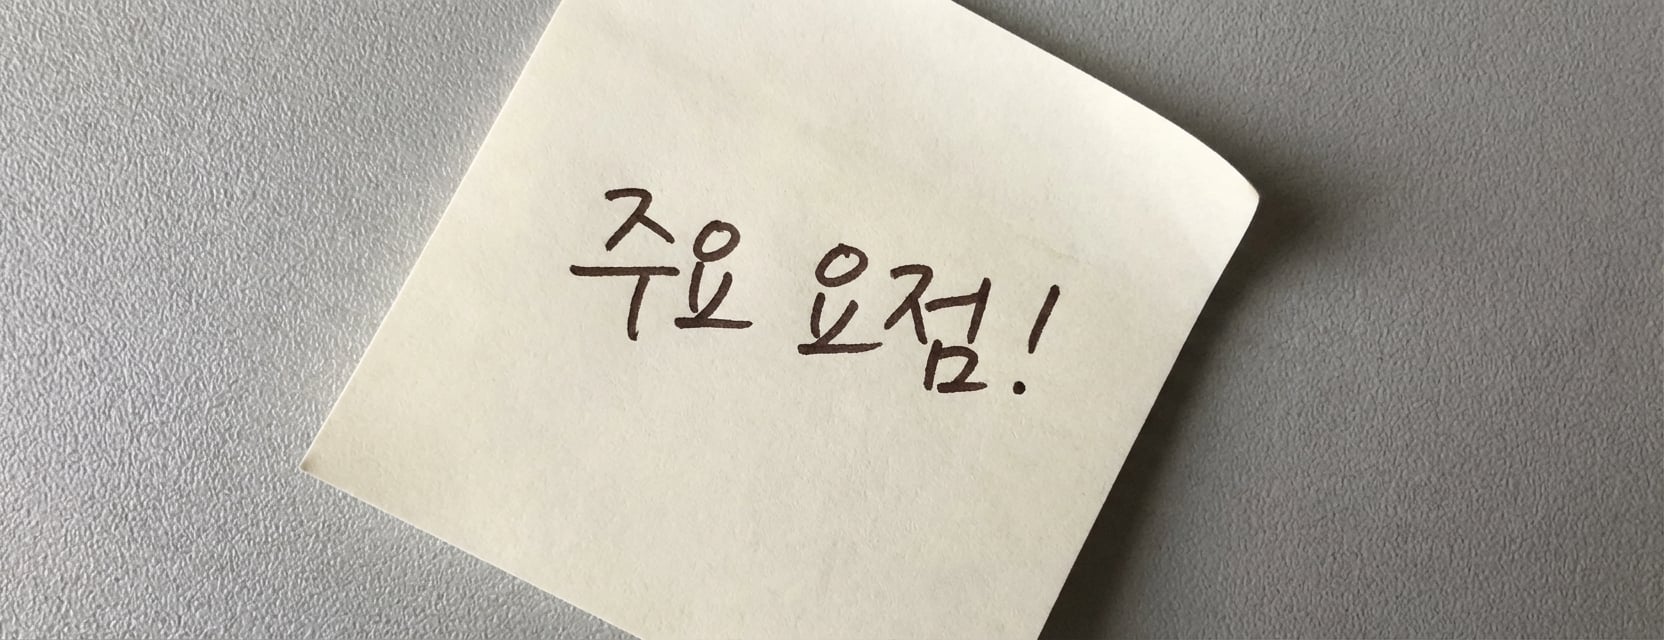 주요 요점!